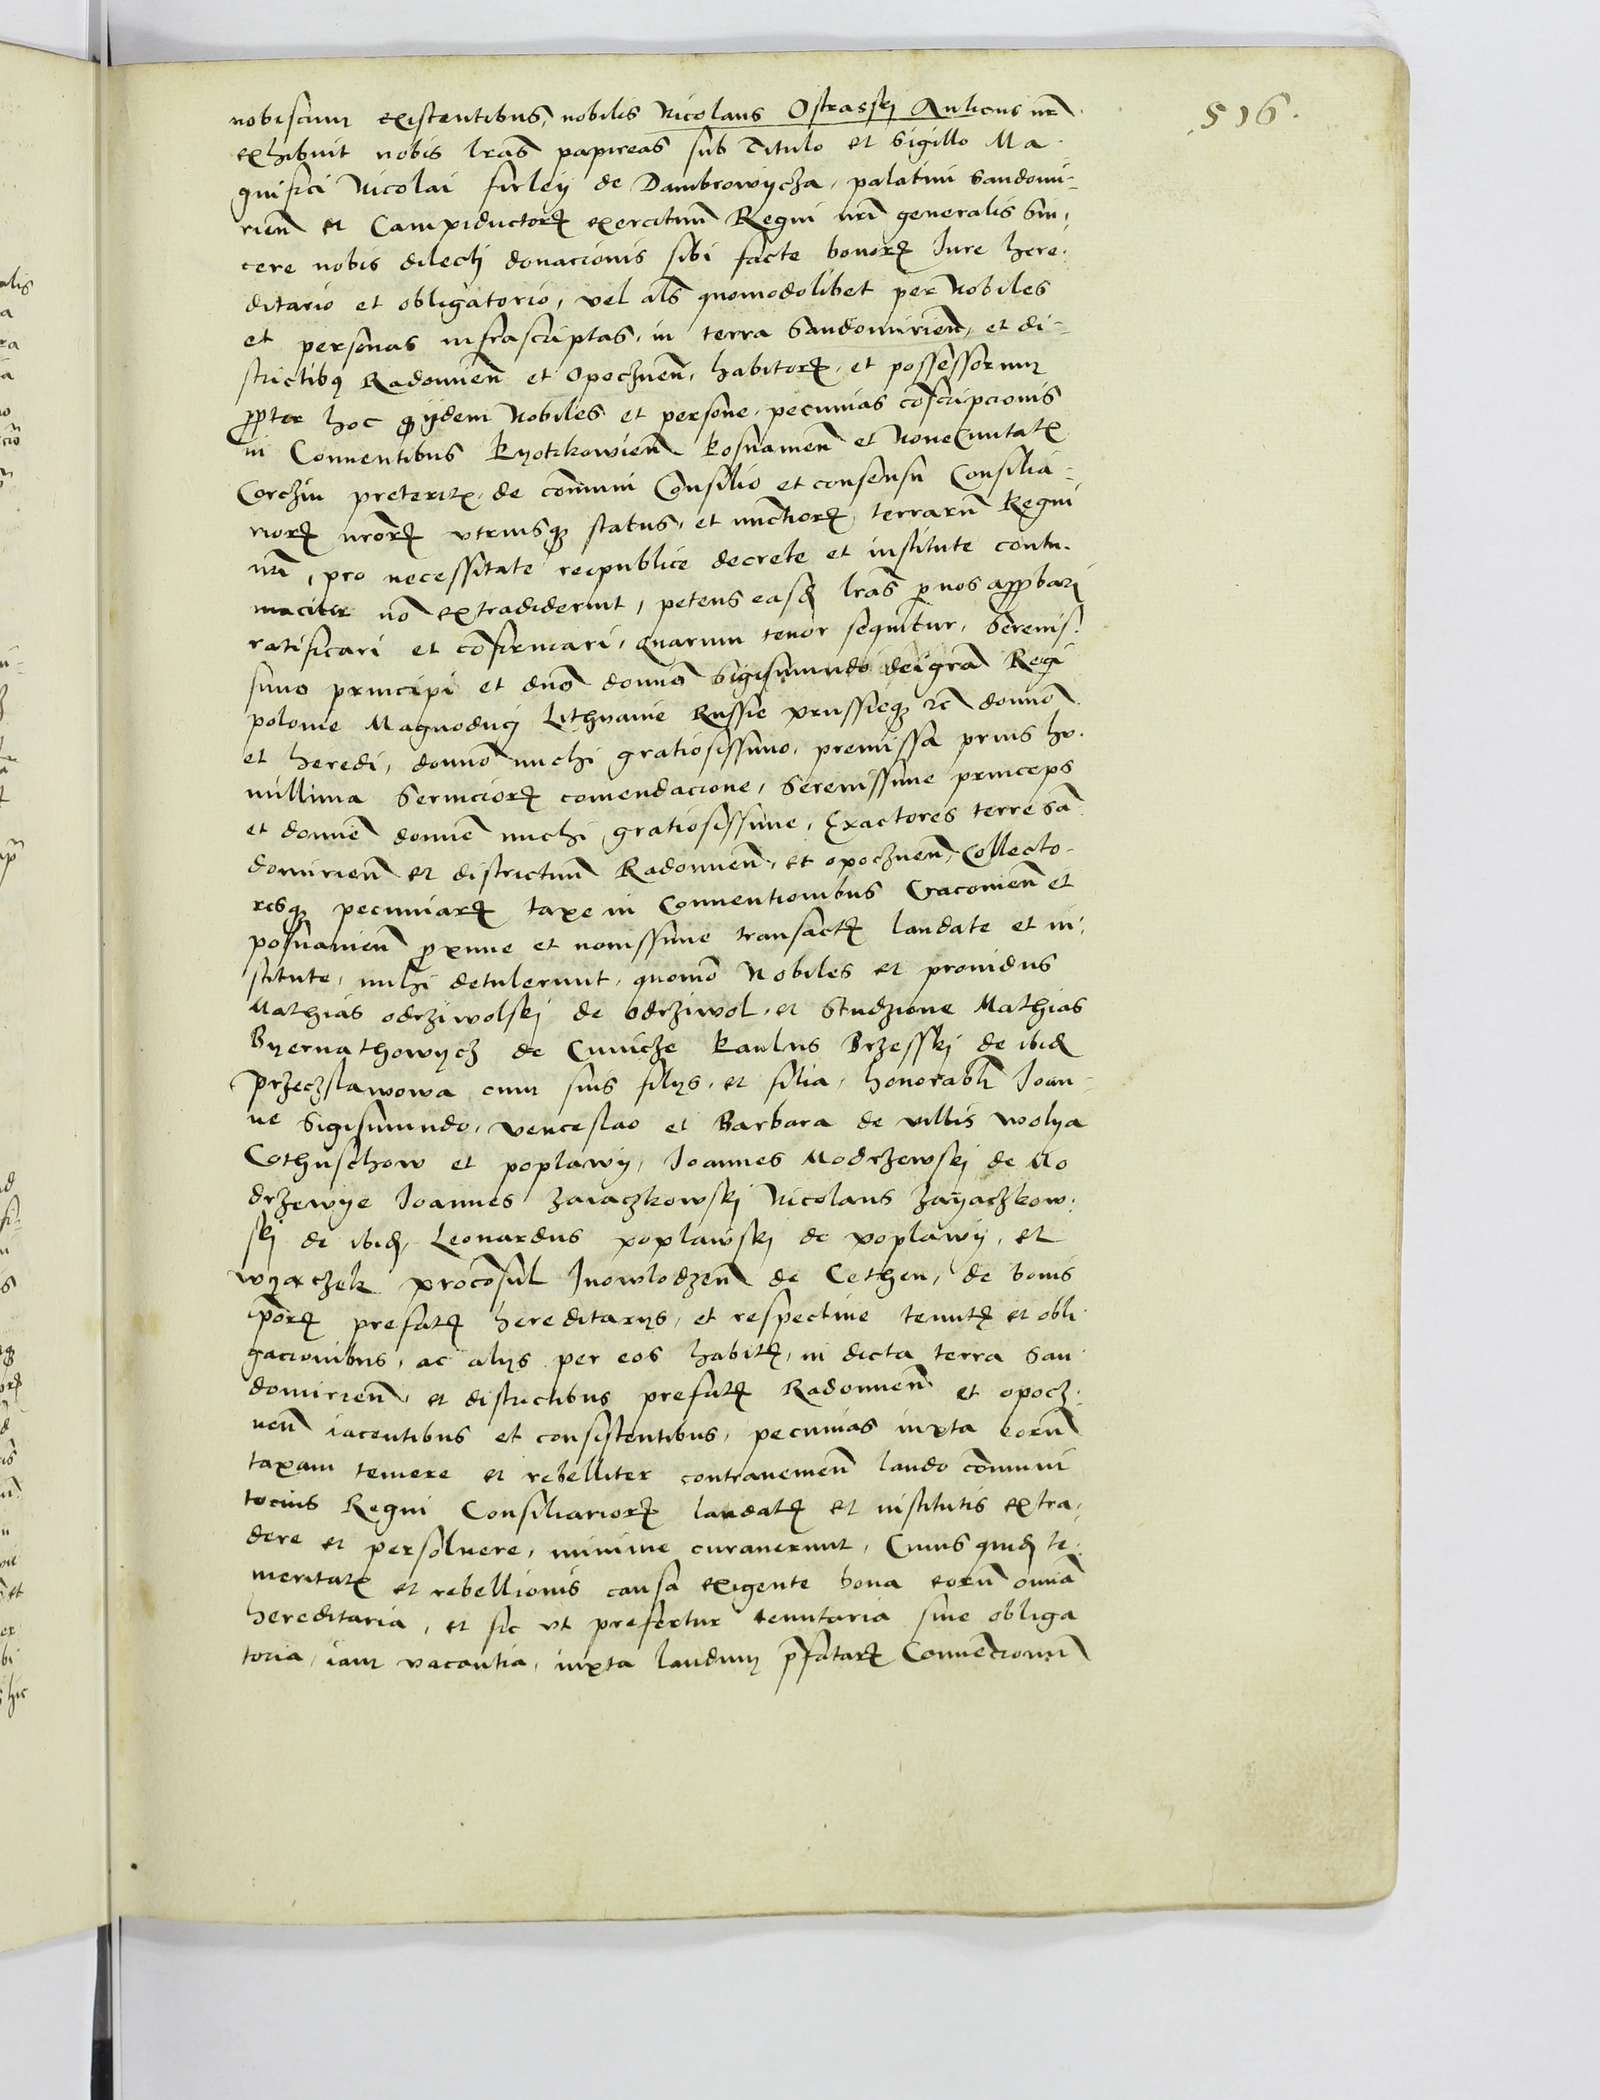 516.
nobiscum existentibus, nobilis Nicolaus Ostrasskj Aulicus nr̄
exhibuit nobis lr̄as papireas sub Titulo et Sigillo Ma
gnifici Nicolai firleÿ de Dambrowycza, palatini Sandomi-
rien̄ et Campiductorꝝ exercituum̄ Regni nr̄i generalis Sin,
cere nobis dilectj donacionis sibi facte bonorꝝ Iure here.
ditario et obligatorio, vel als̄ quomodolibet per Nobiles
et personas infrascriptas, in terra Sandomirien̄, et di-
strictibꝯ Radomien̄ et Opocznen̄, habitorꝝ, et possessorum
ꝓpter hoc ꝙ ijdem Nobiles et persone, pecunias conscripcionis
in Conuentibus Pyotrkowien̄ Posnanien̄ et Noue Ciuitatꝭ
Corczin preteritꝭ, de com̄uni Consilio et consensu Consilia-
riorꝝ nr̄orꝝ vtriusqꝫ status, et nunctiorꝝ terrarum̄ Regni
nr̄i, pro necessitate reipublice decrete et institute contu.
maciter no͂ extradiderunt, petens easdꝫ lr̄as per nos approbarj
ratificari et confirmari, Quarum tenor sequitur, Serenis.
simo principi et dn̄o domn̄o Sigismundo dei gr̄a Regi
polonie Magnoducj Lithuanie Russie prussieqꝫ ec̄ domn̄o
et heredi, domn̄o michi gratiosissimo, premissa prius hu.
millima Seruiciorꝝ comendacione, Serenissime princeps
et domn̄e domn̄e michi gratiosissime, Exactores terre San̄
domirien̄ et districtuum̄ Radomien̄, et opocznen̄, Collecto-
resqꝫ pecuniarꝝ taxe in Conuentionibus Cracouien̄ et
posnanien̄ ꝓxime et nouissime transactꝭ laudate et in,
stitute, mihi detulerunt, quomo͂ Nobiles et prouidus
Mathias odrziwolskj de Odrziwol, et Studzione Mathias
Byernathowycz de Cunicze Paulus Brzesskj de ibidꝫ
Przeczslawowa cum suis filijs, et filia, honorabl̄ Ioan-
ne Sigismundo, venceslao et Barbara de villis wolya
Cothuschow et poplawÿ, Ioannes Modrzewskj de Mo
drzewye Ioannes Zaiaczkowskj Nicolaus Zayaczkow,
skj de ibidꝫ, Leonardus poplawskj de poplawÿ, et
wyarczek proconsul Inowlodzen̄ de Cethen, de bonis
ip̄orꝝ prefatꝭ hereditarijs, et respectiue tenutꝭ et obli
gacionibus, ac alijs per eos habitꝭ, in dicta terra San
domirien̄, et districtibus prefatꝭ Radomien̄ et opocz.
nen̄ iacentibus et consistentibus, pecunias iuxta eorum̄
taxam temere et rebelliter contrauenien̄ laudo com̄uni
tocius Regni Consiliariorꝝ laudatꝭ et institutis extra,
dere et persoluere, minime curauerunt, Cuius quidꝫ te,
meritatꝭ et rebellionis causa exigente bona eorum̄ omn̄ia
hereditaria, et sic vt prefertur tenutaria siue obliga
toria, iam vacantia, iuxta laudum p̄fatarꝝ Conuencionum̄